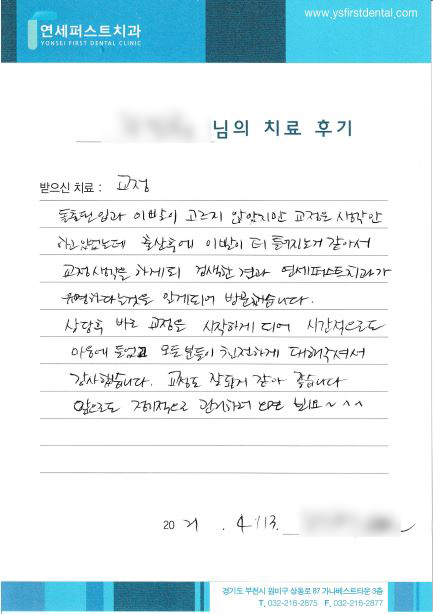 연세퍼스트치과
YONSEI FIRST DENTAL CLINIC
www.ysfirstdental.com
님의 치료 후기
받으신 치료 : 교정
돌출된 입과 이빨이 고르지 않았지만 교정은 생각만
하고 있었는데 출산후에 이빨이 더 틀어지는거 같아서
교정생각을 하게되 검색한 결과 연세퍼스트치과가
유명하다는것을 알게되어 방문했습니다.
상담후 바로 교정은 시작하게 되어 시간적으로도
마음에 들었고 모든분들이 친절하게 대해주셔서
감사했습니다. 교정도 잘되거 같아 좋습니다
앞으로도 정기적으로 관리하며 보면 뵈요~^^
20 21. 4. 13.
경기도 부천시 원미구 상동로 87 가나베스트타운 3층
T. 032-216-2875 F. 032-216-2877